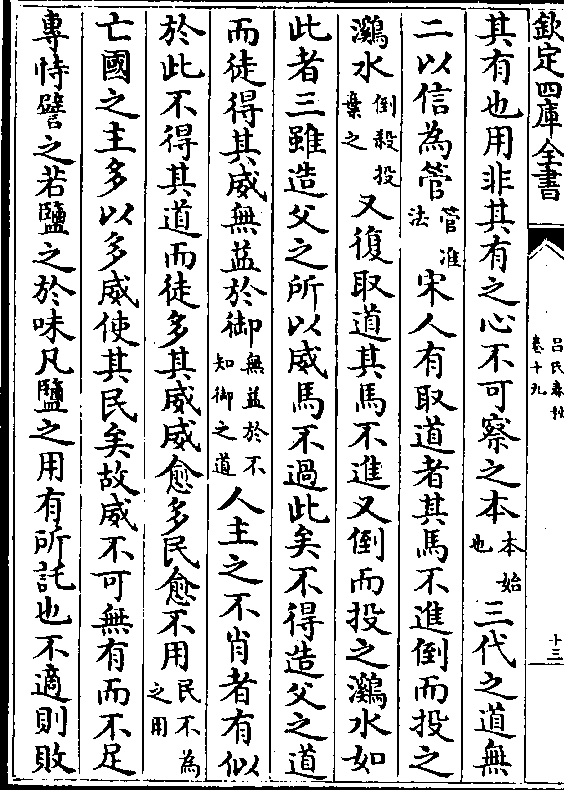 欽定四庫全書
呂氏春秋
卷十九
十三
其有也用非其有之心不可察之本本始也三代之道無
二以信為管管准法宋人有取道者其馬不進倒而投之
鸂水倒殺投棄之又復取道其馬不進又倒而投之鸂水如
此者三雖造父之所以威馬不過此矣不得造父之道
而徒得其威無益於御無益於不知御之道人主之不肖者有似
於此不得其道而徒多其威威愈多民愈不用民不為之用
亡國之主多以多威使其民矣故威不可無有而不足
專恃譬之若鹽之於味凡鹽之用有所託也不適則敗